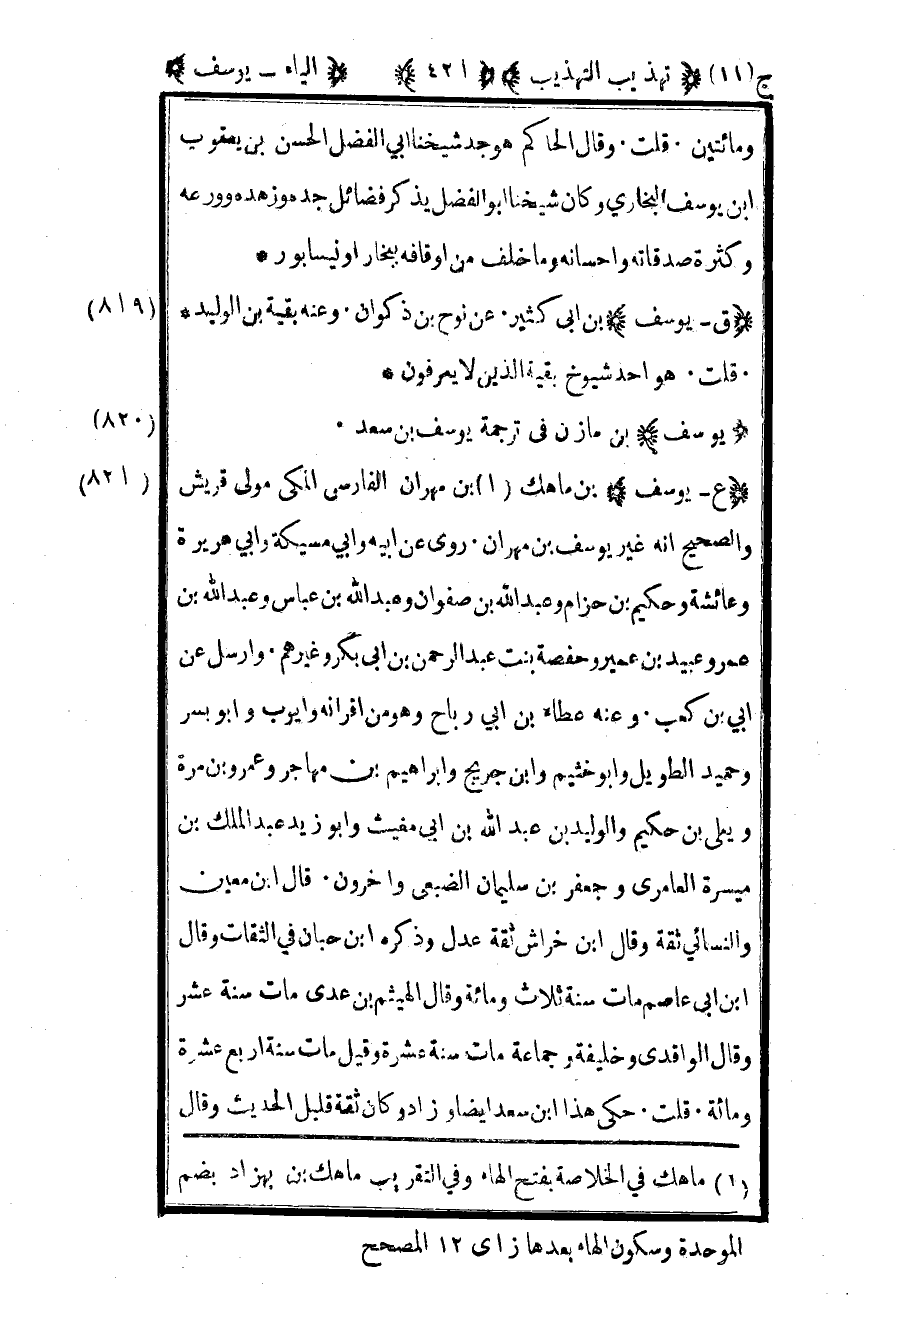 ج (١١) ﴿ تهذيب التهذيب ﴾ ﴿ ٤٢١ ﴾ ﴿ الياء ـ يوسف ﴾
ومائتين · قلت · وقال الحاكم هو جد شيخنا ابي الفضل الحسن بن يعقوب
ابن يوسف البخاري وكان شيخنا ابو الفضل يذكر فضائل جده وزهده وورعه
وكثرة صدقاته واحسانه وما خلف من اوقافه ببخارا ونيسابور *
﴿ ق ـ يوسف ﴾ بن ابى كثير · عن نوح بن ذكوان · وعنه بقية بن الوليد * (٨١٩)
· قلت · هو احد شيوخ بقية الذين لا يعرفون *
﴿ يوسف ﴾ بن مازن فى ترجمة يوسف بن سعد · (٨٢٠)
﴿ ع ـ يوسف ﴾ بن ماهك (١) بن مهران الفارسى المكى مولى قريش (٨٢١)
والصحيح انه غير يوسف بن مهران · روى عن ابيه وابي مسيكة وابي هريرة
وعائشة وحكيم بن حزام وعبد الله بن صفوان وعبد الله بن عباس وعبد الله بن
عمرو وعبيد بن عمير وحفصة بنت عبد الرحمن بن ابى بكر وغيرهم · وارسل عن
ابي بن كعب · وعنه عطاء بن ابي رباح وهو من اقرانه وايوب وابو بسر
وحميد الطويل وابو خثيم وابن جريج وابراهيم بن مهاجر وعمرو بن مرة
ويعلى بن حكيم والوليد بن عبد الله بن ابى مغيث وابو زيد عبد الملك بن
ميسرة العامرى وجعفر بن سليمان الضبعى واخرون · قال ابن معين
والنسائي ثقة وقال ابن خراش ثقة عدل وذكره ابن حبان في الثقات وقال
ابن ابى عاصم مات سنة ثلاث ومائة وقال الهيثم بن عدى مات سنة عشر
وقال الواقدى وخليفة وجماعة مات سنة عشرة وقيل مات سنة اربع عشرة
ومائة · قلت · حكى هذا ابن سعد ايضا وزاد وكان ثقة قليل الحديث وقال
(١) ماهك في الخلاصة بفتح الهاء وفي التقريب ماهك بن بهزاد بضم
الموحدة وسكون الهاء بعدها زاى ١٢ المصحح